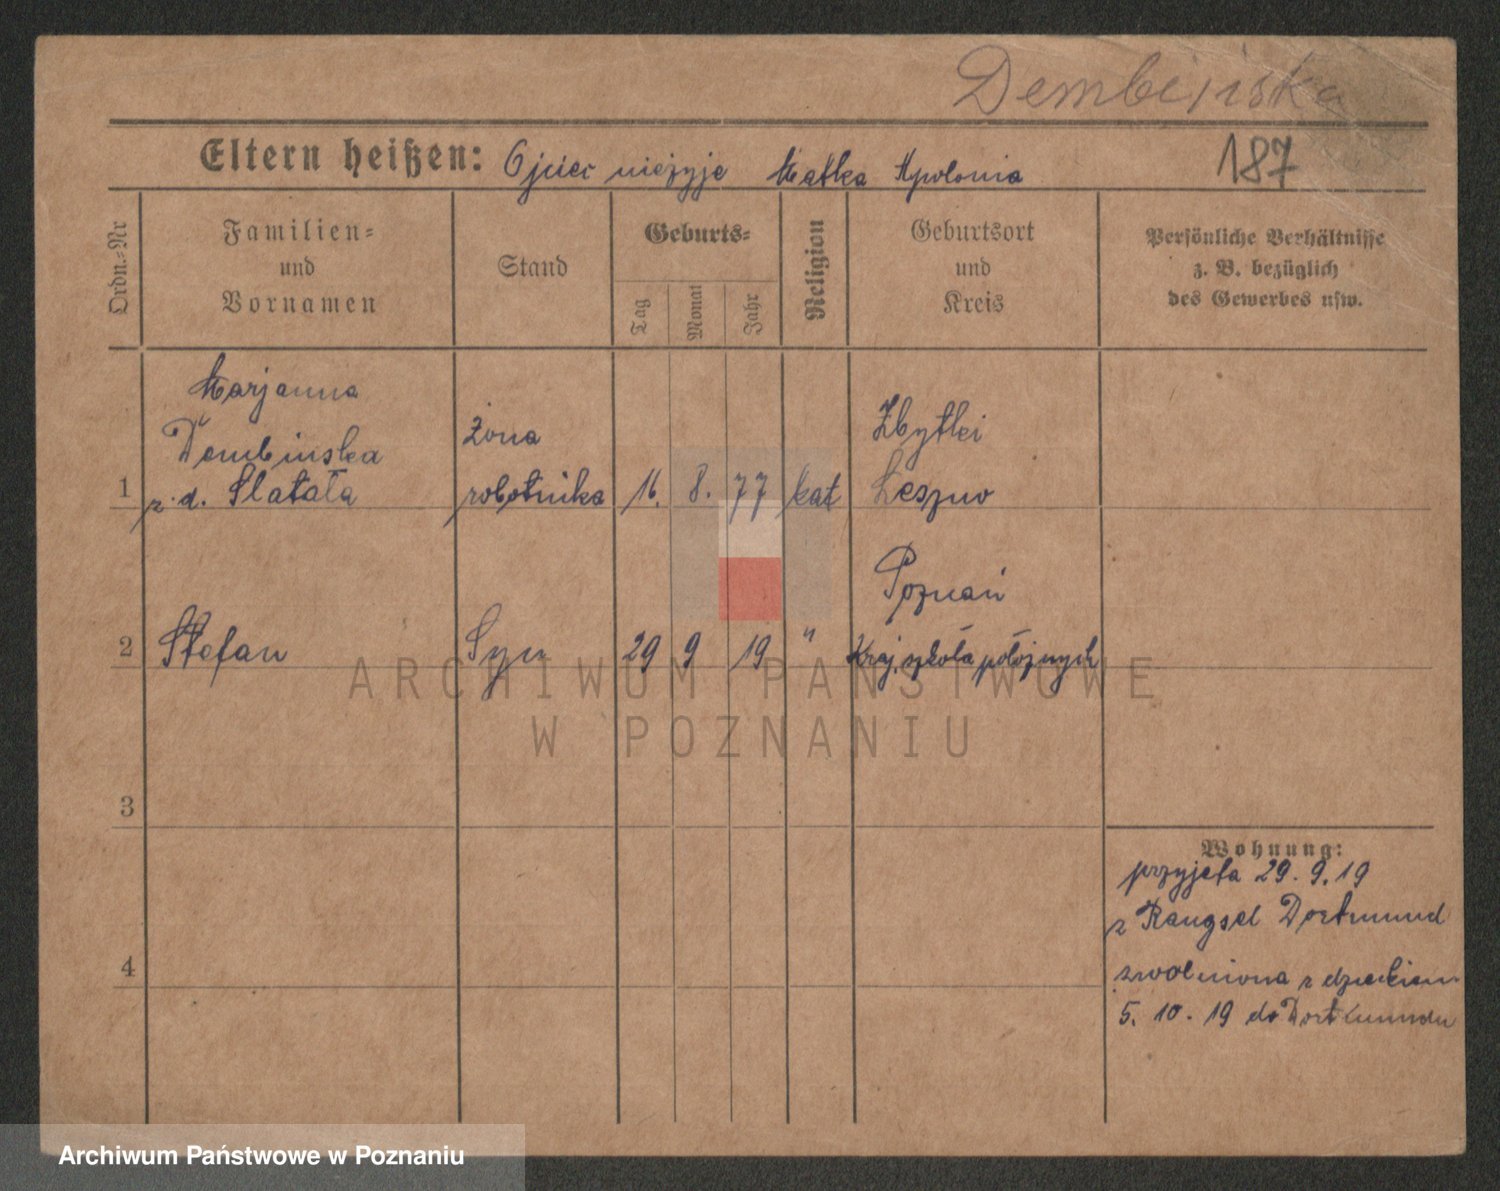 Dembińska
187
Eltern heißen: Ojciec nieżyje Matka Apolonia
Ordn.-Nr
Familien-
und
Vornamen
Stand
Geburts-
Tag
Monat
Jahr
Religion
Geburtsort
und
Kreis
Persönliche Verhältnisse
z. B. bezüglich
des Gewerbes usw.
Marjanna
Dembinska
1 z. d. Slatała
żona
robotnika
16. 8. 77 kat
Zbytki
Leszno
2 Stefan Syn 29 9 19 "
Poznań
Kraj. szkoła położnych
3
4
Wohnung:
przyjęta 29. 9. 19
z Dortmund
zwolniona z dzieckiem
5. 10. 19 do Dortmundu
ARCHIWUM PAŃSTWOWE
W POZNANIU
Archiwum Państwowe w Poznaniu